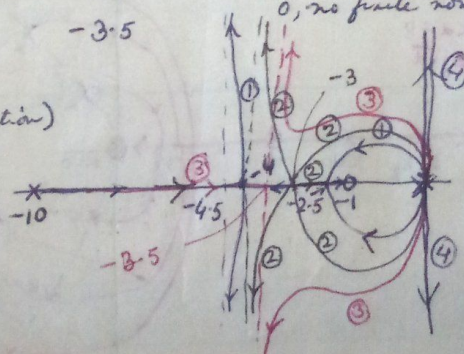 0, no finite
-3.5
tion)
-3
①
②
③
④
②
①
③
②
-10
-4.5
-2.5
-1
-3.5
②
②
④
③